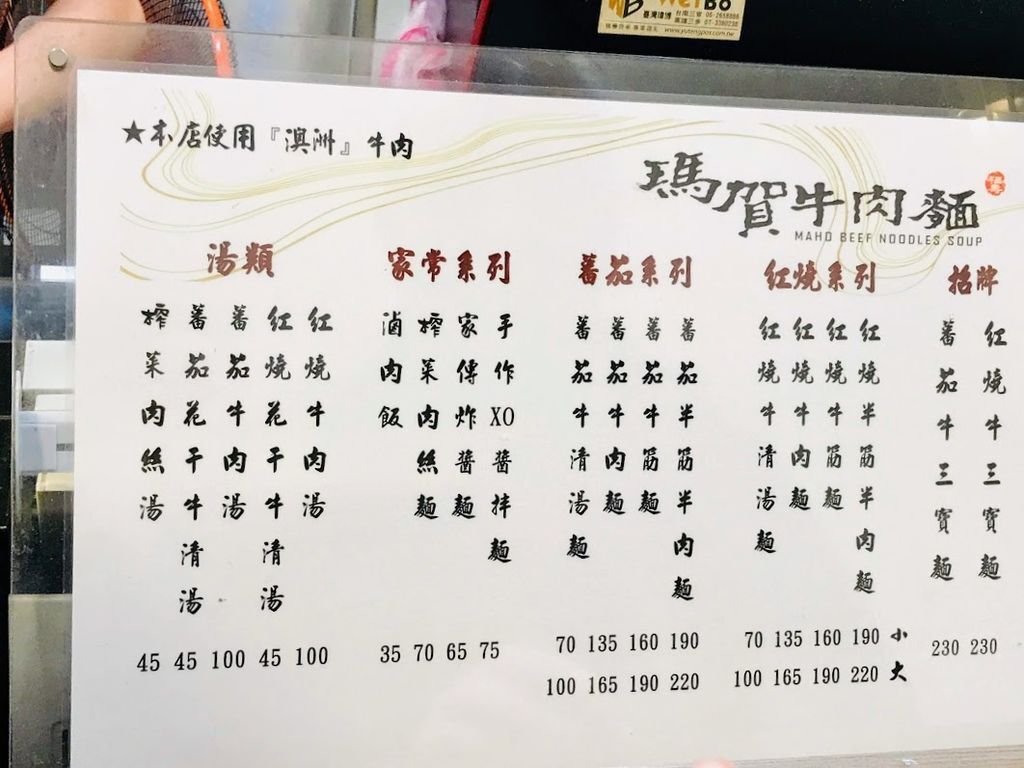 WEIBO
★本店使用『澳洲』牛肉
瑪賀牛肉麵
MAHO BEEF NOODLES SOUP
招牌
紅燒牛三寶麵 230
蕃茄牛三寶麵 230
紅燒系列
小 大
紅燒半筋半肉麵 190 220
紅燒牛筋麵 160 190
紅燒牛肉麵 135 165
紅燒牛清湯麵 70 100
蕃茄系列
蕃茄半筋半肉麵 190 220
蕃茄牛筋麵 160 190
蕃茄牛肉麵 135 165
蕃茄牛清湯麵 70 100
家常系列
手作XO醬拌麵 75
家傳炸醬麵 65
榨菜肉絲麵 70
滷肉飯 35
湯類
紅燒牛肉湯 100
紅燒花干牛清湯 45
蕃茄牛肉湯 100
蕃茄花干牛清湯 45
榨菜肉絲湯 45